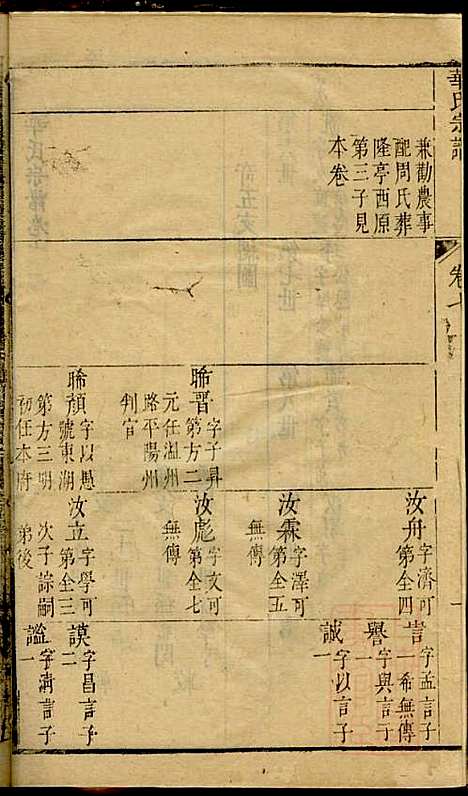 華氏宗譜
卷十
一
兼勸農事
配周氏葬
隆亭西原
第三子見
本卷
晞晋字子昇
第方二
元任溫州
路平陽州
判官
晞顏字以愚
號東湖
第方三明
初任本府
汝舟字濟可
第全四
汝霖字澤可
第全五
無傳
汝彪字文可
第全七
無傳
汝立字學可
第全三
次子詠嗣
弟後
字孟言子
一希無傳
譽字與言子
一
誠字以言子
一
謨字昌言子
二
謐字言子
一